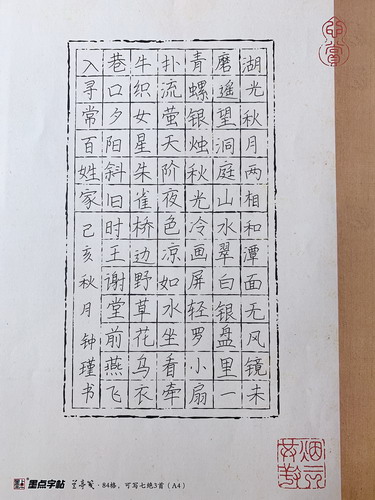 湖光秋月两相和潭面无风镜未
磨遥望洞庭山水翠白银盘里一
青螺银烛秋光冷画屏轻罗小扇
扑流萤天阶夜色凉如水坐看牵
牛织女星朱雀桥边野草花乌衣
巷口夕阳斜旧时王谢堂前燕飞
入寻常百姓家 己亥秋月 钟瑾书
墨点字帖 兰亭笺·84格，可写七绝3首（A4）